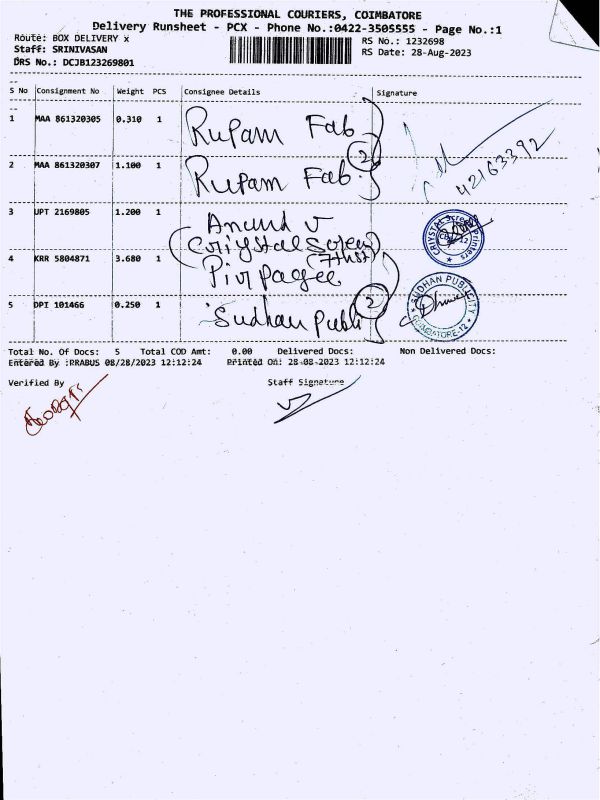 THE PROFESSIONAL COURIERS, COIMBATORE
Delivery Runsheet - PCX - Phone No.:0422-3505555 - Page No.:1
Route: BOX DELIVERY x
RS No.: 1232698
Staff: SRINIVASAN
RS Date: 28-Aug-2023
DRS No.: DCJB123269801
S No Consignment No Weight PCS Consignee Details Signature
1 MAA 861320305 0.310 1 Rupam Fab
2
42163392
2 MAA 861320307 1.100 1 Rupam Fab.
3 UPT 2169805 1.200 1 Anand V
(Criystal Screen)
CRIYSTAL Screen Printers
4 KRR 5804871 3.680 1
5 DPI 101466 0.250 1 Sudhan Publi
2
SUDHAN PUBLICITY
COIMBATORE-12
Total No. Of Docs: 5 Total COD Amt: 0.00 Delivered Docs: Non Delivered Docs:
Entered By :RRABUS 08/28/2023 12:12:24 Printed On: 28-08-2023 12:12:24
Verified By Staff Signature